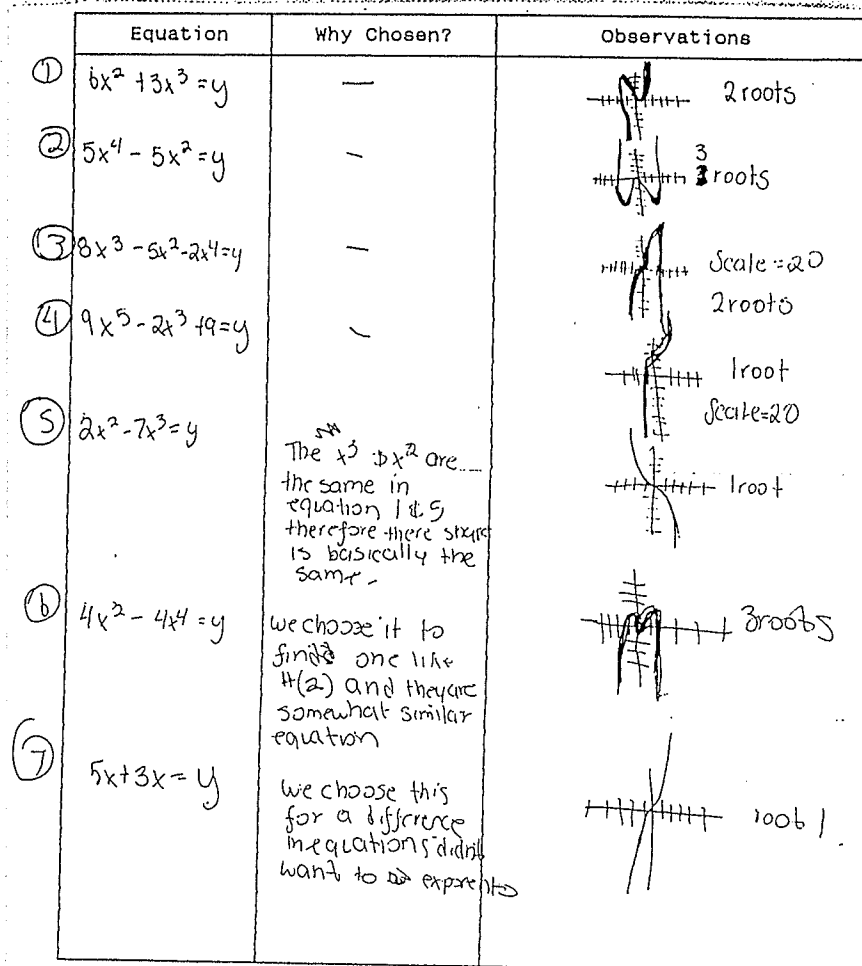 Equation Why Chosen? Observations
① 6x² + 3x³ = y — 2 roots
② 5x⁴ - 5x² = y — 3 roots
③ 8x³ - 5x² - 2x⁴ = y — Scale = 20
2 roots
④ 9x⁵ - 2x³ + 9 = y — 1 root
Scale = 20
⑤ 2x² - 7x³ = y 1 root
The x³ & x² are
the same in
equation 1 & 5
therefore there
is basically the
same.
⑥ 4x² - 4x⁴ = y 3 roots
we choose it to
find one like
#(2) and they are
somewhat similar
equation
⑦ 5x + 3x = y root 1
we choose this
for a difference
in equations didnt
want to exponents